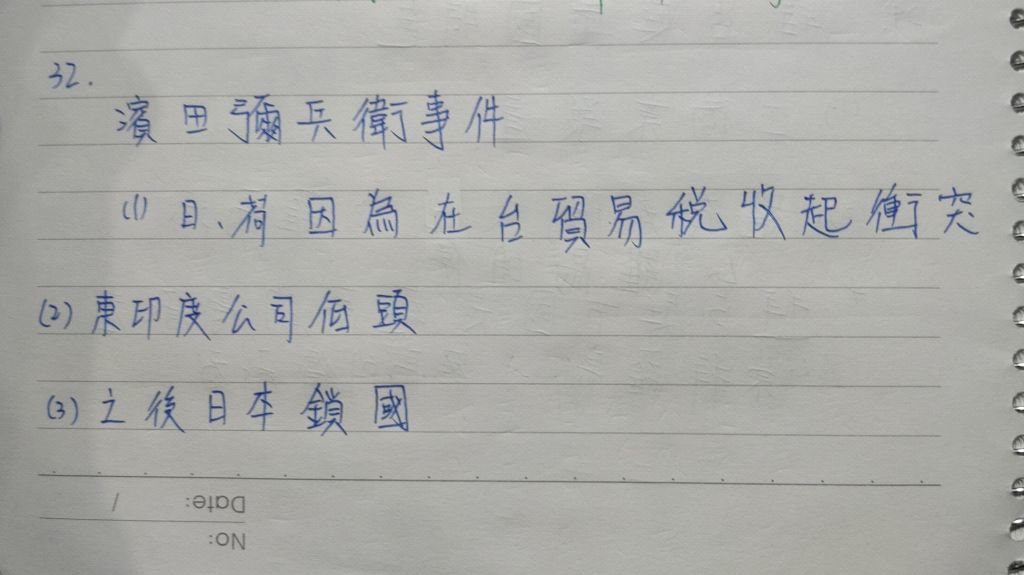 32.
濱田彌兵衛事件
(1) 日、荷因為在台貿易稅收起衝突
(2) 東印度公司低頭
(3) 之後日本鎖國
Date: /
No: